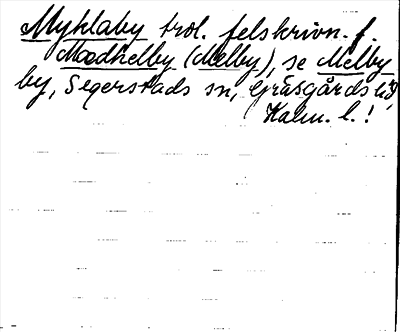 Myklaby trol. felskrivn. f.
Mædhelby (Melby), se Melby
by, Segerstads sn, Gräsgårds hd,
Kalm. l.!